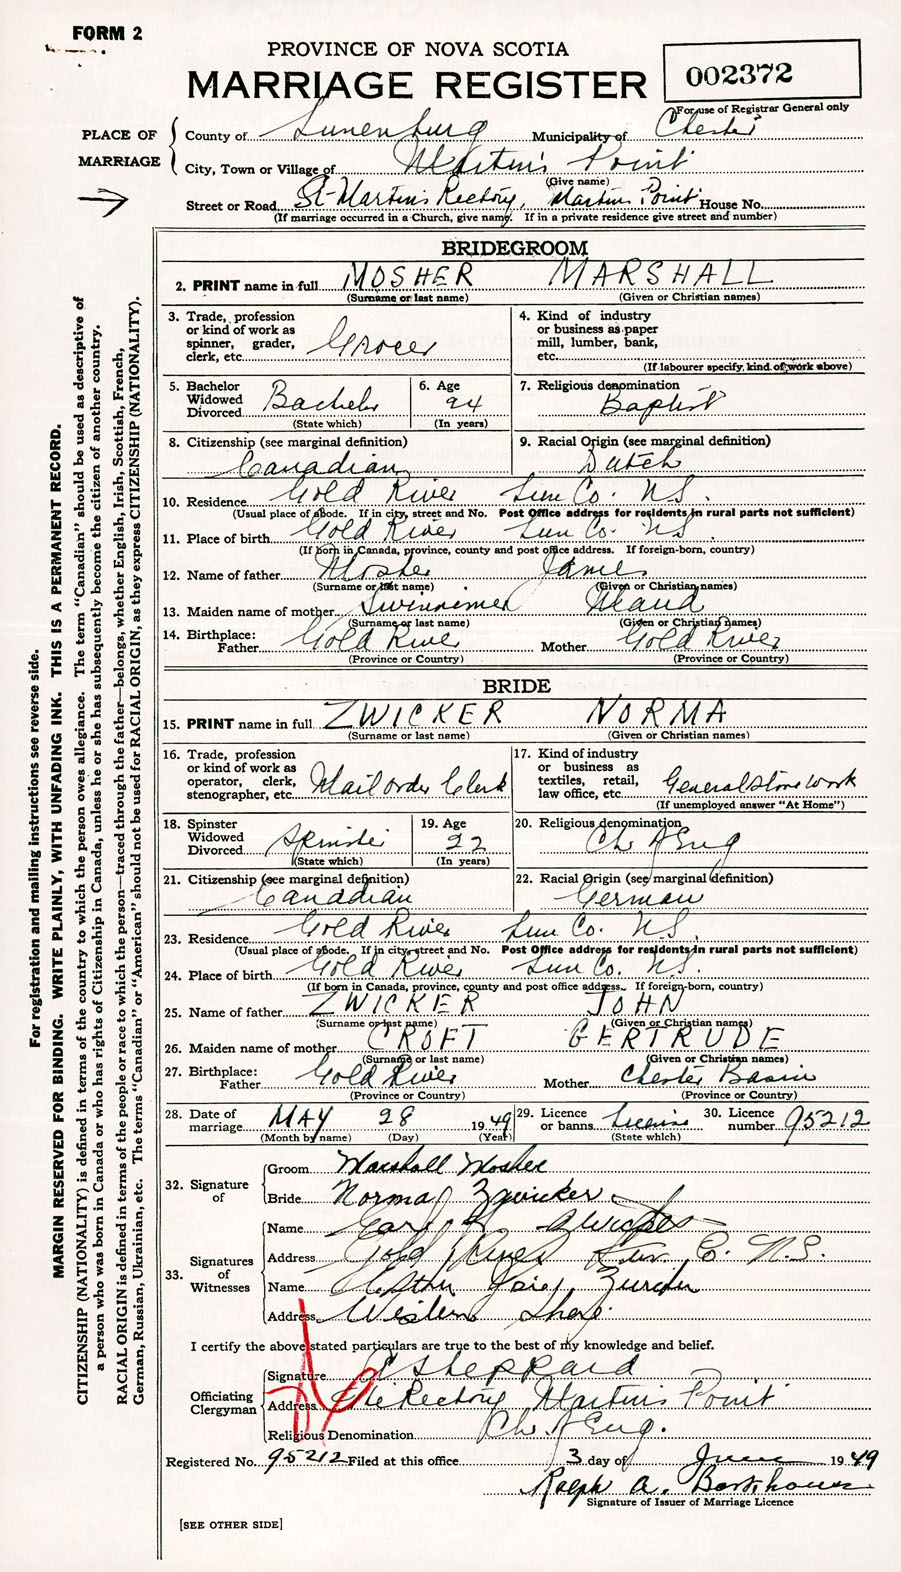 FORM 2
PROVINCE OF NOVA SCOTIA
MARRIAGE REGISTER
002372
For use of Registrar General only
PLACE OF MARRIAGE
County of Lunenburg Municipality of Chester
City, Town or Village of Martin's Point
(Give name)
Street or Road St-Martin's Rectory, Martins Point House No.
(If marriage occurred in a Church, give name. If in a private residence give street and number)
BRIDEGROOM
2. PRINT name in full MOSHER MARSHALL
(Surname or last name) (Given or Christian names)
3. Trade, profession or kind of work as spinner, grader, clerk, etc. Grocer
4. Kind of industry or business as paper mill, lumber, bank, etc.
(If labourer specify kind of work above)
5. Bachelor Widowed Divorced Bachelor
(State which)
6. Age 24
(In years)
7. Religious denomination Baptist
8. Citizenship (see marginal definition) Canadian
9. Racial Origin (see marginal definition) Dutch
10. Residence Gold River Lun Co. N.S.
(Usual place of abode. If in city, street and No. Post Office address for residents in rural parts not sufficient)
11. Place of birth Gold River Lun Co. NS
(If born in Canada, province, county and post office address. If foreign-born, country)
12. Name of father Mosher James
(Surname or last name) (Given or Christian names)
13. Maiden name of mother Swinnemer Maud
(Surname or last name) (Given or Christian names)
14. Birthplace: Father Gold River Mother Gold River
(Province or Country) (Province or Country)
BRIDE
15. PRINT name in full ZWICKER NORMA
(Surname or last name) (Given or Christian names)
16. Trade, profession or kind of work as operator, clerk, stenographer, etc. Mail order Clerk
17. Kind of industry or business as textiles, retail, law office, etc. General store work
(If unemployed answer "At Home")
18. Spinster Widowed Divorced Spinster
(State which)
19. Age 22
(In years)
20. Religious denomination Ch of Eng
21. Citizenship (see marginal definition) Canadian
22. Racial Origin (see marginal definition) German
23. Residence Gold River Lun Co. N.S.
(Usual place of abode. If in city, street and No. Post Office address for residents in rural parts not sufficient)
24. Place of birth Gold River Lun Co. N.S.
(If born in Canada, province, county and post office address. If foreign-born, country)
25. Name of father ZWICKER JOHN
(Surname or last name) (Given or Christian names)
26. Maiden name of mother CROFT GERTRUDE
(Surname or last name) (Given or Christian names)
27. Birthplace: Father Gold River Mother Chester Basin
(Province or Country) (Province or Country)
28. Date of marriage MAY 28 1949
(Month by name) (Day) (Year)
29. Licence or banns License
(State which)
30. Licence number 95212
32. Signature of
Groom Marshall Mosher
Bride Norma Zwicker
33. Signatures of Witnesses
Name Zwicker
Address Gold River Lun. Co. N.S.
Name
Address Western Shore
I certify the above stated particulars are true to the best of my knowledge and belief.
Officiating Clergyman
Signature Sheppard
Address The Rectory Martins Point
Religious Denomination Ch of Eng.
Registered No. 95212 Filed at this office 3 day of June 1949
Ralph A. Barkhouse
Signature of Issuer of Marriage Licence
[SEE OTHER SIDE]
For registration and mailing instructions see reverse side.
MARGIN RESERVED FOR BINDING. WRITE PLAINLY, WITH UNFADING INK. THIS IS A PERMANENT RECORD.
CITIZENSHIP (NATIONALITY) is defined in terms of the country to which the person owes allegiance. The term "Canadian" should be used as descriptive of
a person who was born in Canada or who has rights of Citizenship in Canada, unless he or she has subsequently become the citizen of another country.
RACIAL ORIGIN is defined in terms of the people or race to which the person—traced through the father—belongs, whether English, Irish, Scottish, French,
German, Russian, Ukrainian, etc. The terms "Canadian" or "American" should not be used for RACIAL ORIGIN, as they express CITIZENSHIP (NATIONALITY).